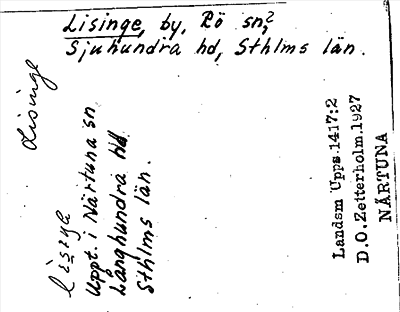 Lisinge, by, Rö sn,?
Sjuhundra hd, Sthlms län.
Lisinge
Uppt. i Närtuna sn
Långhundra hd.
Sthlms län.
Landsm Upps.1417:2
D.O.Zetterholm.1927
NÄRTUNA